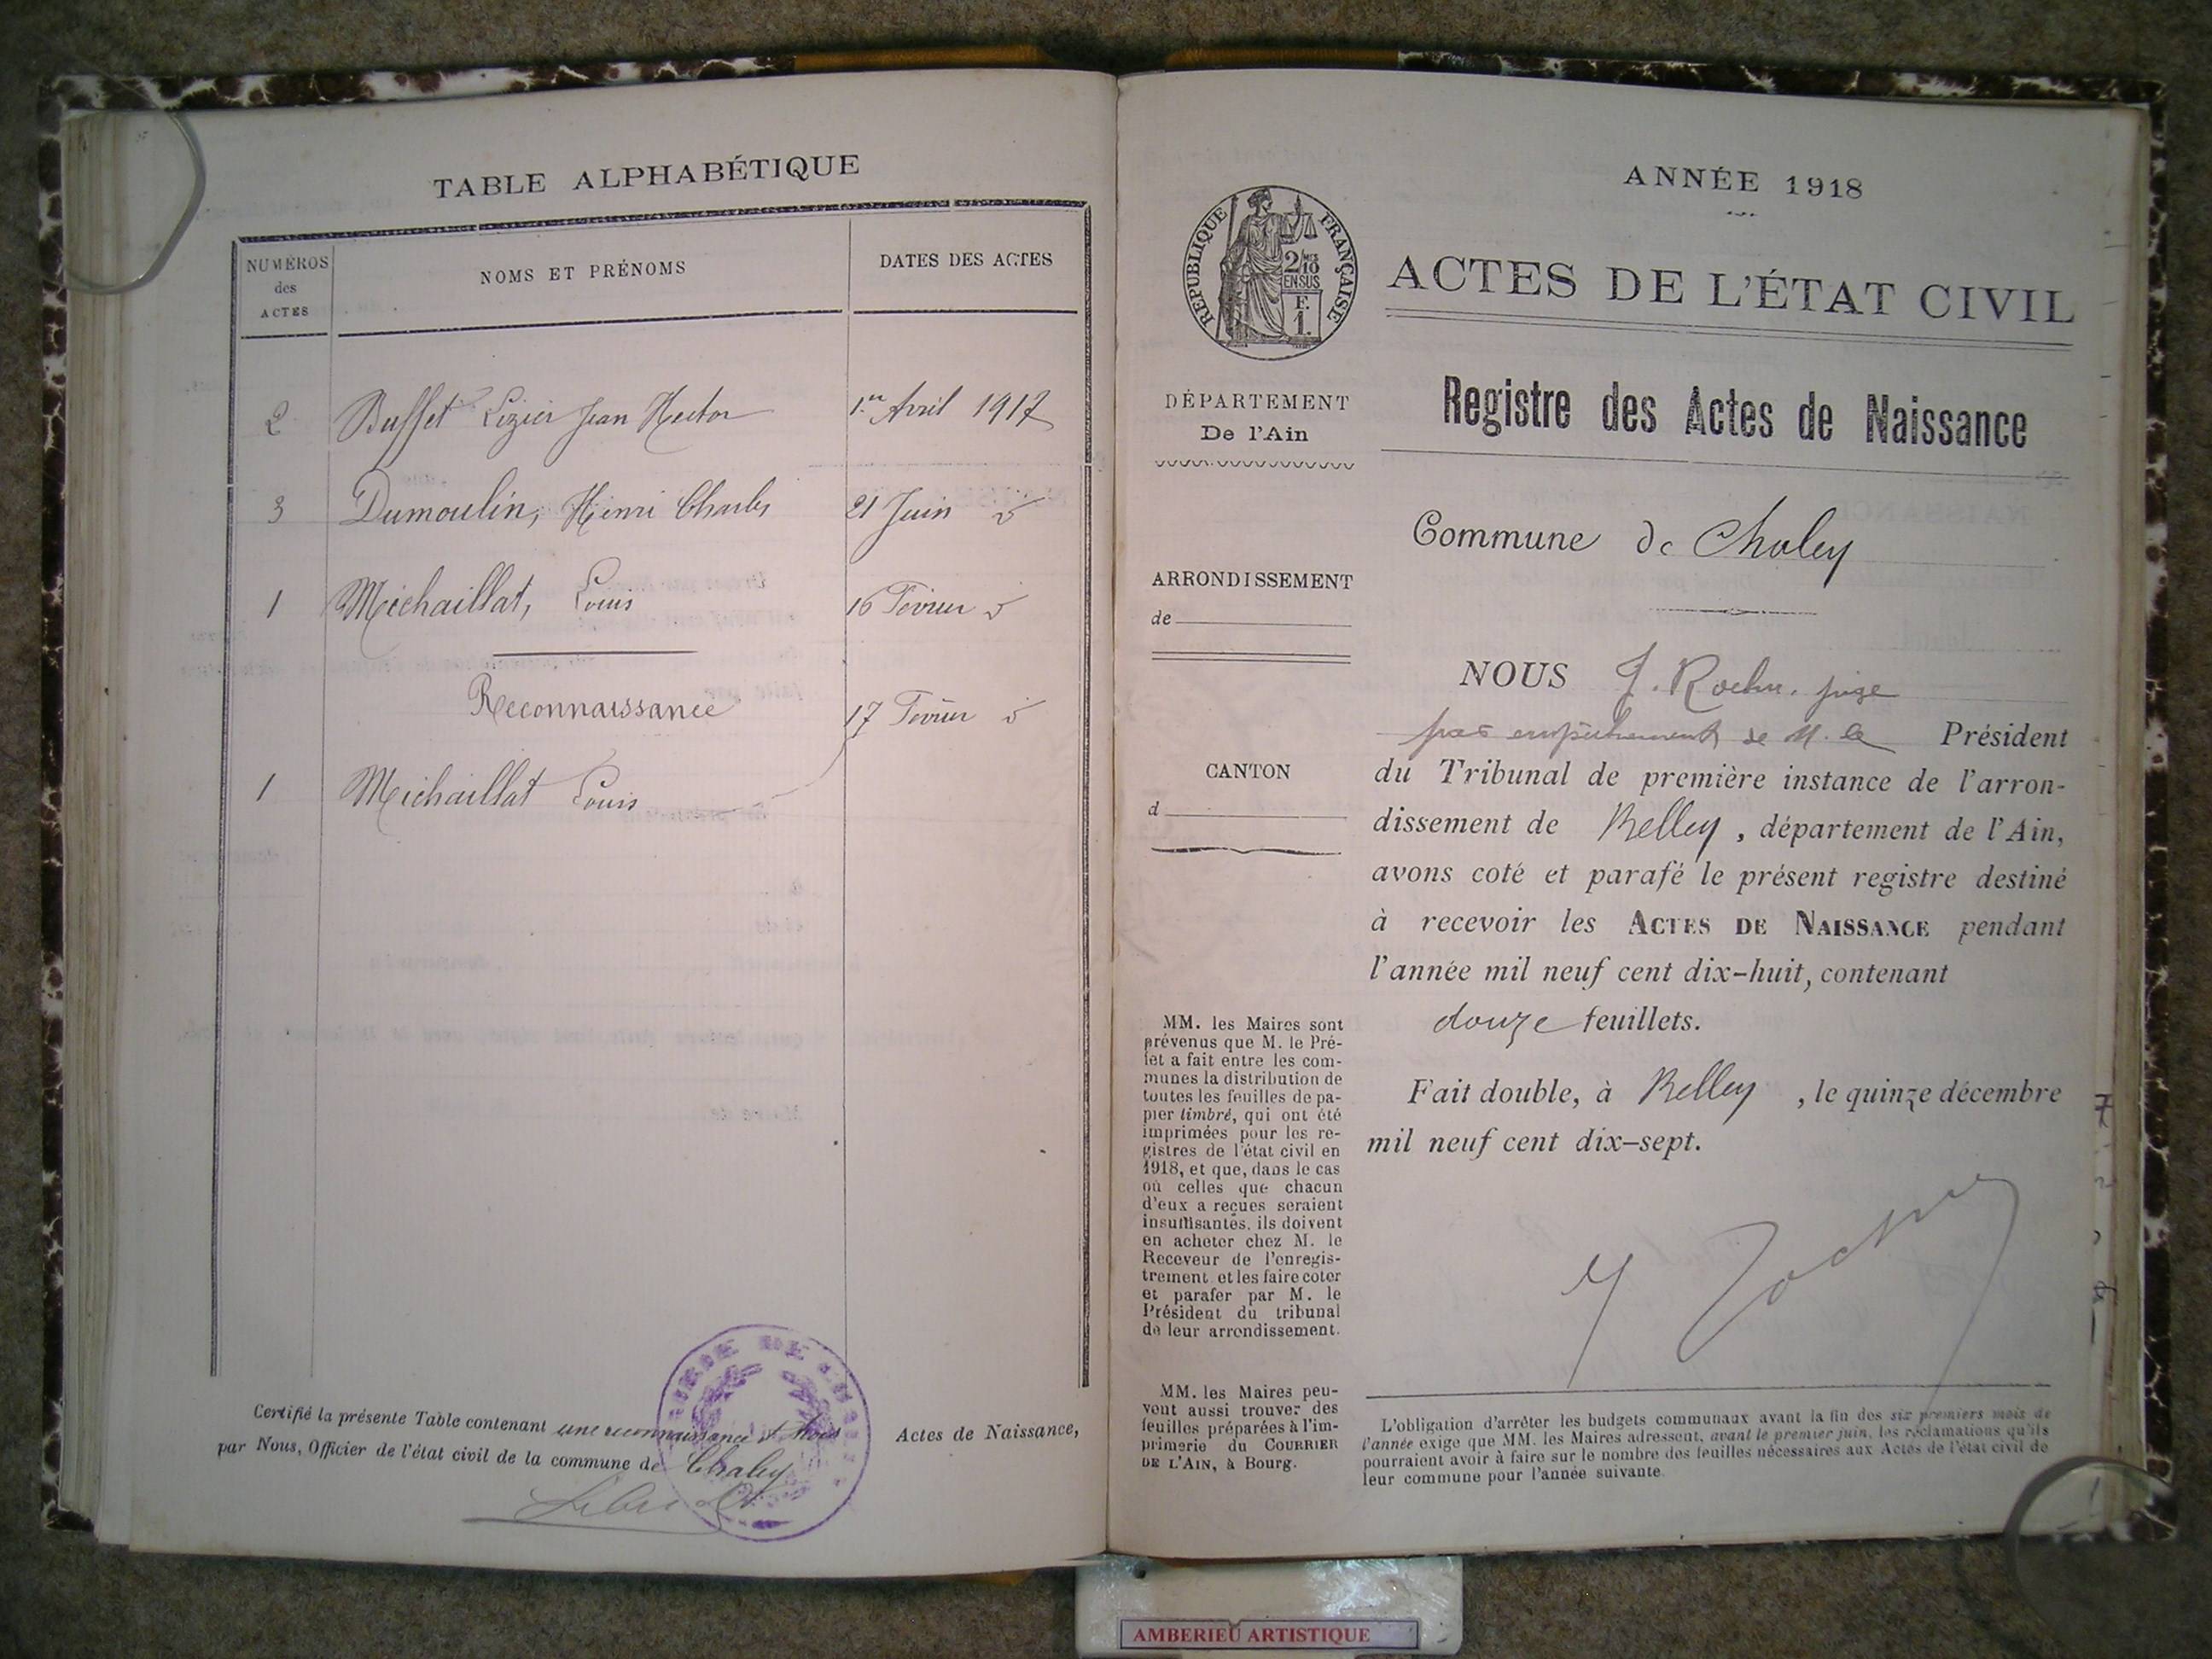 TABLE ALPHABÉTIQUE
NUMÉROS des ACTES
NOMS ET PRÉNOMS
DATES DES ACTES
2 Buffet Lizier Jean Hector 1er Avril 1917
3 Dumoulin, Henri Charles 21 Juin
1 Michaillat, Louis 16 Février
Reconnaissance 17 Février
1 Michaillat Louis
Certifié la présente Table contenant une reconnaissance et trois Actes de Naissance,
par Nous, Officier de l'état civil de la commune de Chaley
ANNÉE 1918
RÉPUBLIQUE FRANÇAISE
2/10
EN SUS
F.
1.
ACTES DE L'ÉTAT CIVIL
DÉPARTEMENT
De l'Ain
Registre des Actes de Naissance
Commune de Chaley
ARRONDISSEMENT
de
CANTON
d
NOUS J. Rochu. juge
par empêchement de M. le Président
du Tribunal de première instance de l'arron-
dissement de Belley, département de l'Ain,
avons coté et parafé le présent registre destiné
à recevoir les ACTES DE NAISSANCE pendant
l'année mil neuf cent dix-huit, contenant
douze feuillets.
Fait double, à Belley, le quinze décembre
mil neuf cent dix-sept.
MM. les Maires sont
prévenus que M. le Pré-
fet a fait entre les com-
munes la distribution de
toutes les feuilles de pa-
pier timbré, qui ont été
imprimées pour les re-
gistres de l'état civil en
1918, et que, dans le cas
où celles que chacun
d'eux a reçues seraient
insuffisantes, ils doivent
en acheter chez M. le
Receveur de l'enregis-
trement et les faire coter
et parafer par M. le
Président du tribunal
de leur arrondissement.
MM. les Maires peu-
vent aussi trouver des
feuilles préparées à l'im-
primerie du COURRIER
DE L'AIN, à Bourg.
L'obligation d'arrêter les budgets communaux avant la fin des six premiers mois de
l'année exige que MM. les Maires adressent, avant le premier juin, les réclamations qu'ils
pourraient avoir à faire sur le nombre des feuilles nécessaires aux Actes de l'état civil de
leur commune pour l'année suivante.
AMBERIEU ARTISTIQUE